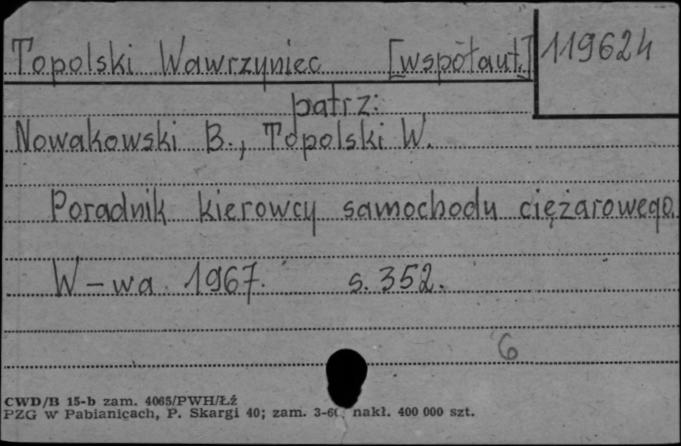 Topolski Wawrzyniec [współaut.] 119624
patrz:
Nowakowski B., Topolski W.
Poradnik kierowcy samochodu ciężarowego.
W-wa 1967. s. 352.
6
CWD/B 15-b zam. 4065/PWH/Łź
PZG w Pabianicach, P. Skargi 40; zam. nakł. 400 000 szt.